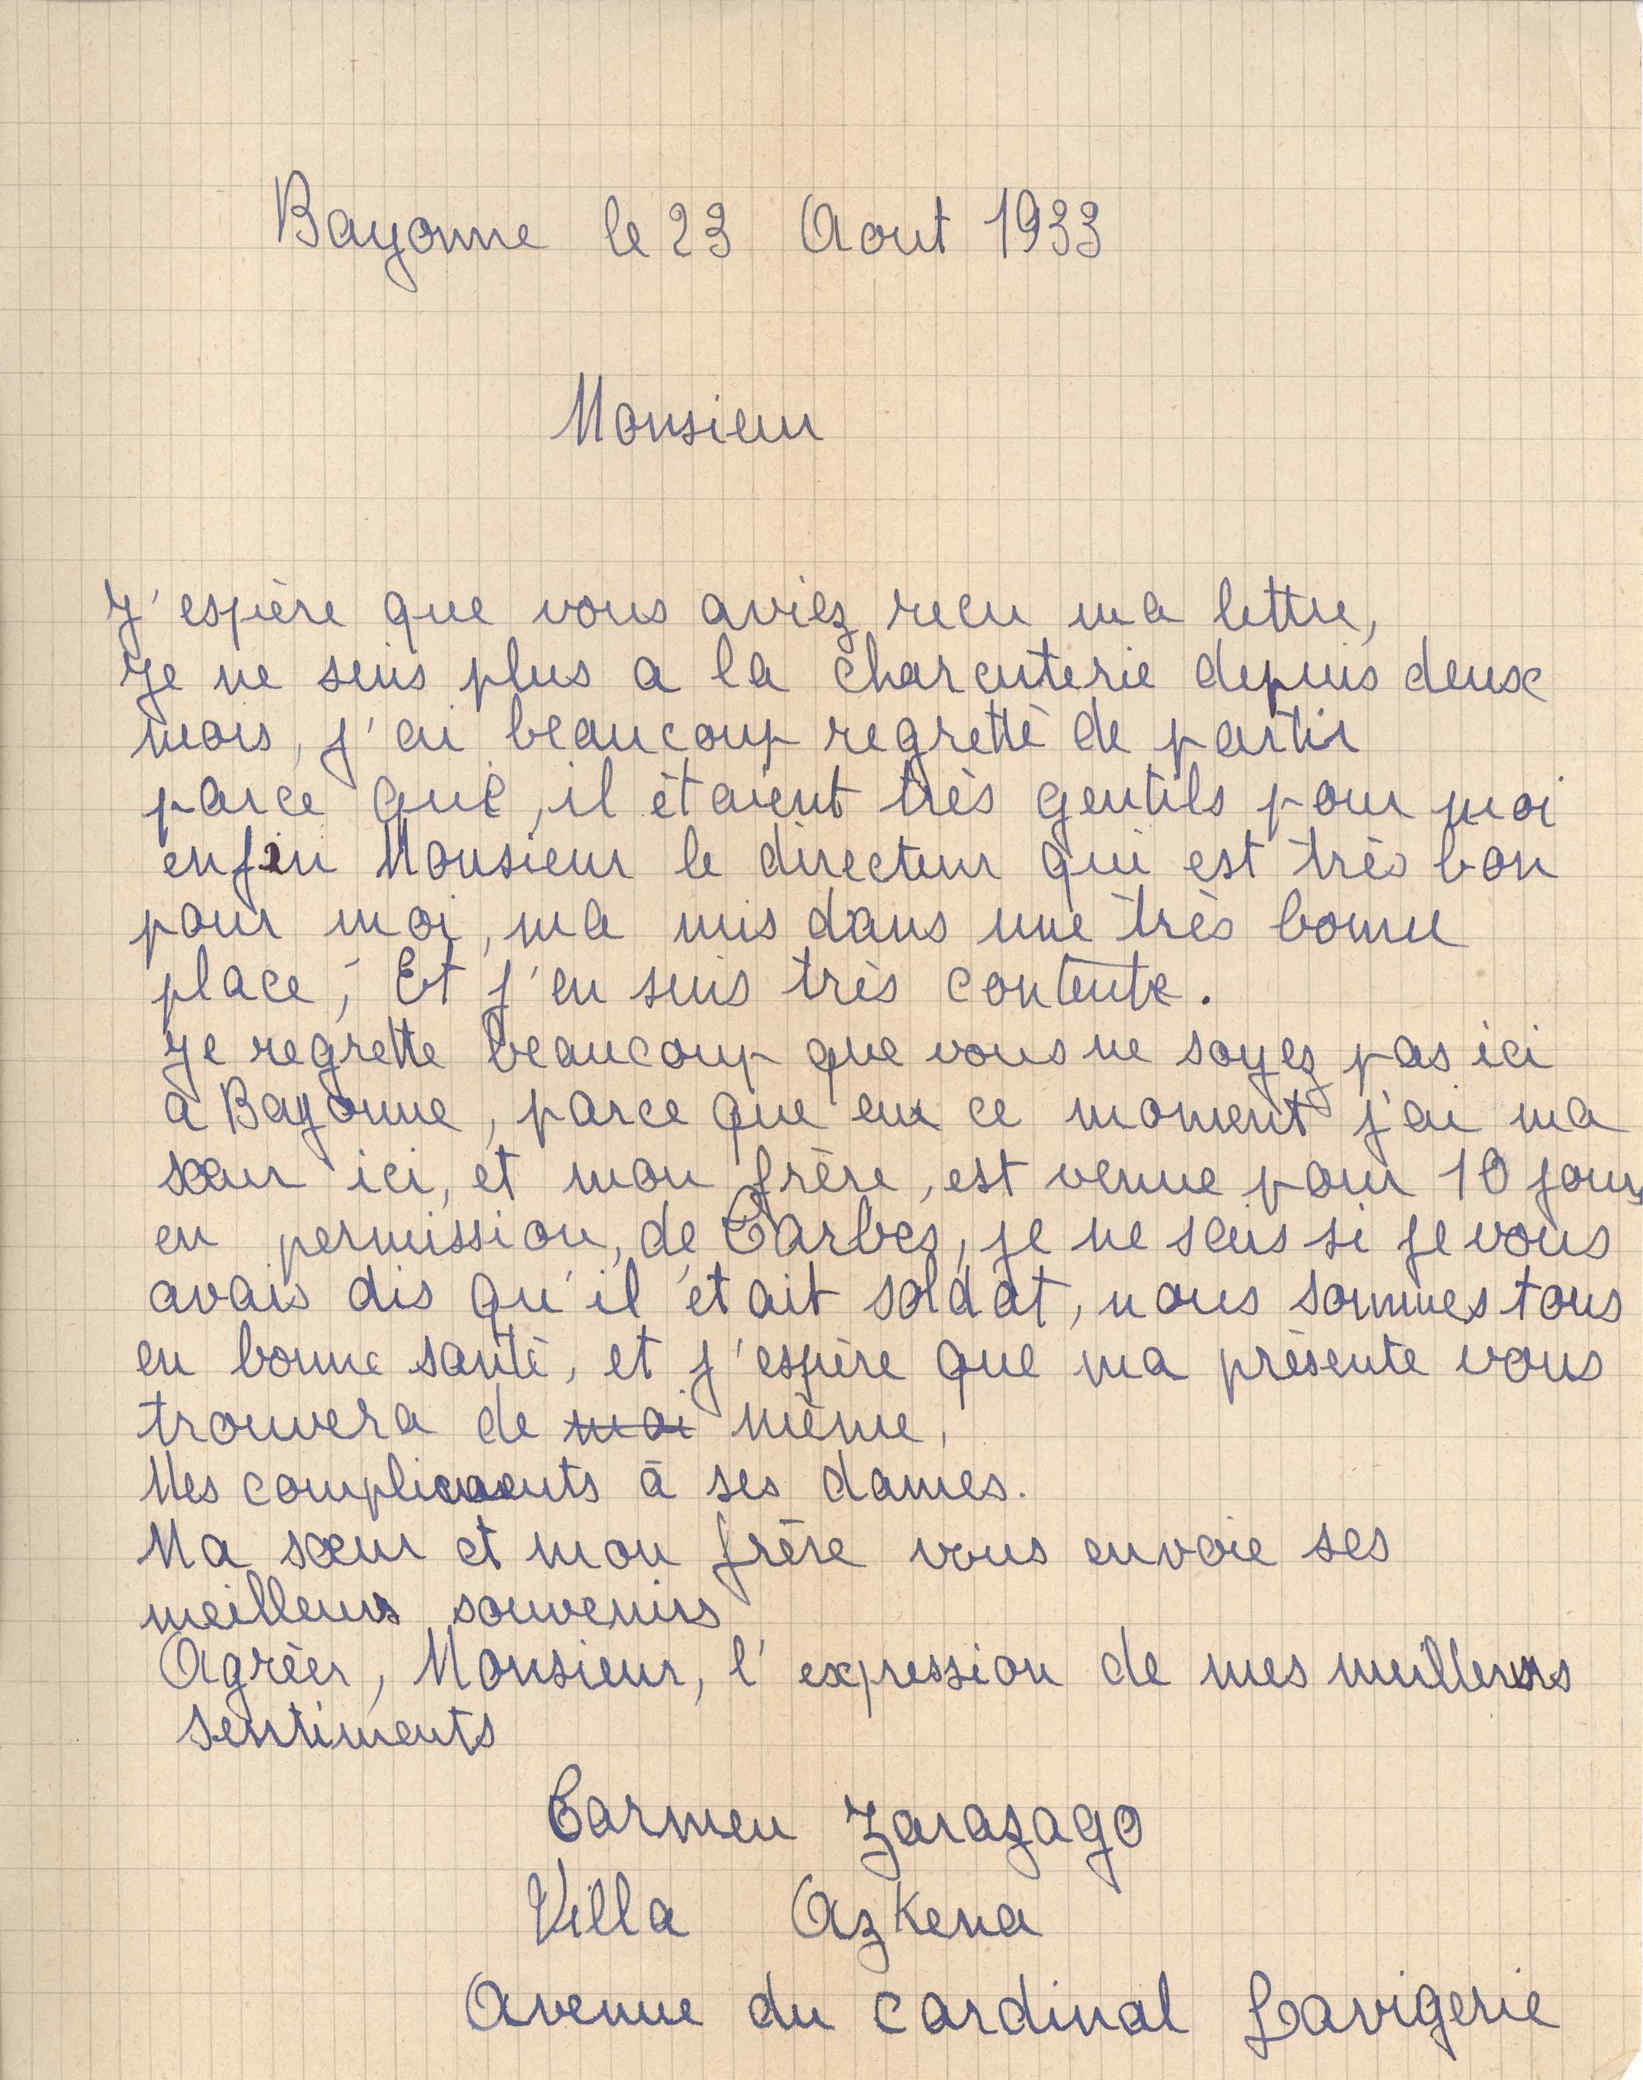 Bayonne le 23 Aout 1933
Monsieur
J'espère que vous aviez recu ma lettre,
Je ne suis plus a la charcuterie depuis deux
mois, j'ai beaucoup regrettè de partir
parce que, il ètaient très gentils pour moi
enfin Monsieur le directeur qui est très bon
pour moi, ma mis dans une très bonne
place, Et j'en suis très contente.
Je regrette beaucoup que vous ne soyez pas ici
a Bayonne, parce que en ce moment j'ai ma
sœur ici, et mon frère, est venue pour 10 jours
en permission, de Tarbes, je ne sais si je vous
avais dis qu'il ètait soldat, nous sommes tous
en bonne santè, et j'espère que ma prèsente vous
trouvera de moi mème.
Mes compliments à ses dames.
Ma sœur et mon frère vous envoie ses
meilleurs souvenirs
Agrèer, Monsieur, l'expression de mes meilleurs
sentiments
Carmen Zarazago
Villa Azkena
Avenue du Cardinal Lavigerie